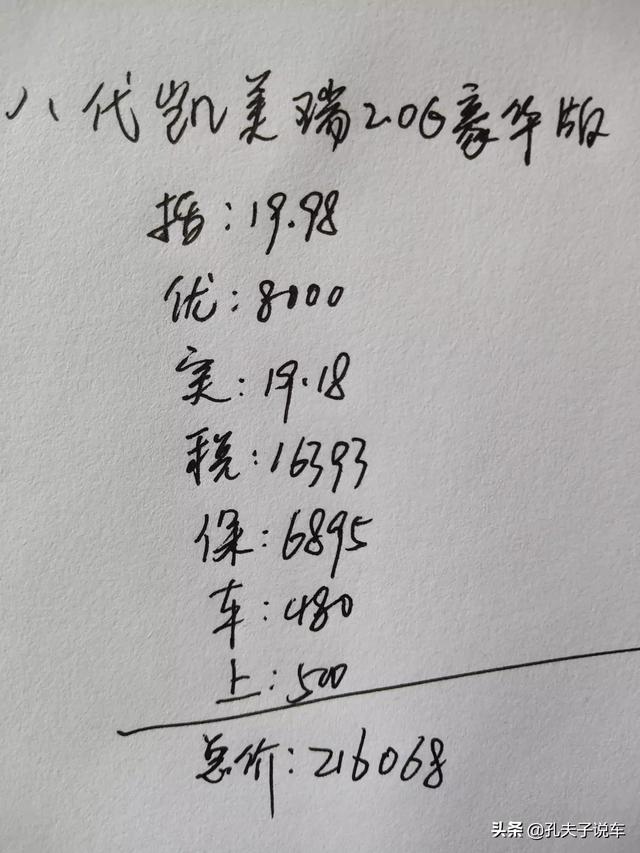 八代凯美瑞2.0G豪华版
指：19.98
优：8000
实：19.18
税：16393
保：6895
车：480
上：500
总价：216068
头条 @孔夫子说车